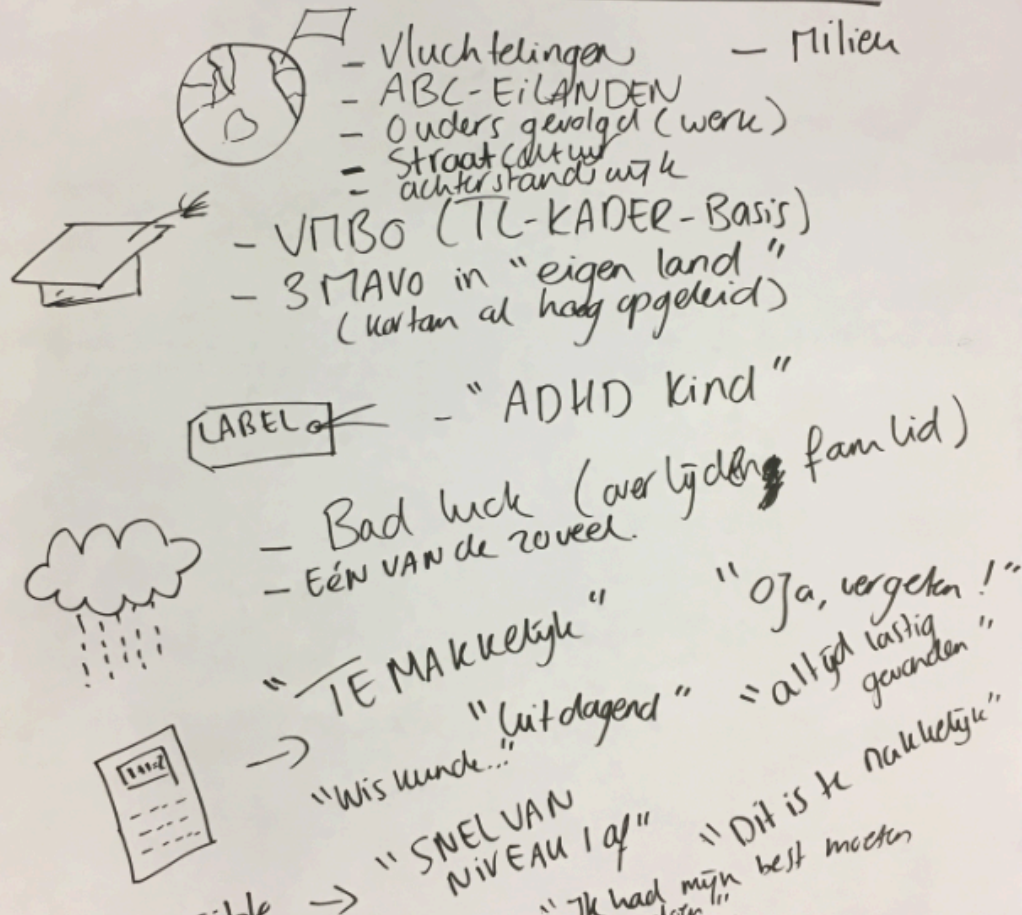 - Vluchtelingen
- Milieu
- ABC-EILANDEN
- Ouders gevolgd (werk)
- Straatcultuur
- achterstandswijk
- VMBO (TL-KADER-Basis)
- 3 MAVO in "eigen land"
(kortom al hoog opgeleid)
LABEL
- "ADHD Kind"
- Bad luck (overlijden fam lid)
- EéN VAN de zoveel.
"TE MAKKELIJK"
"Oja, vergeten!"
"uitdagend"
"altijd lastig
gevonden"
"Wiskunde..."
"SNEL VAN
NIVEAU 1 af"
"Dit is te makkelijk"
"Ik had mijn best moeten